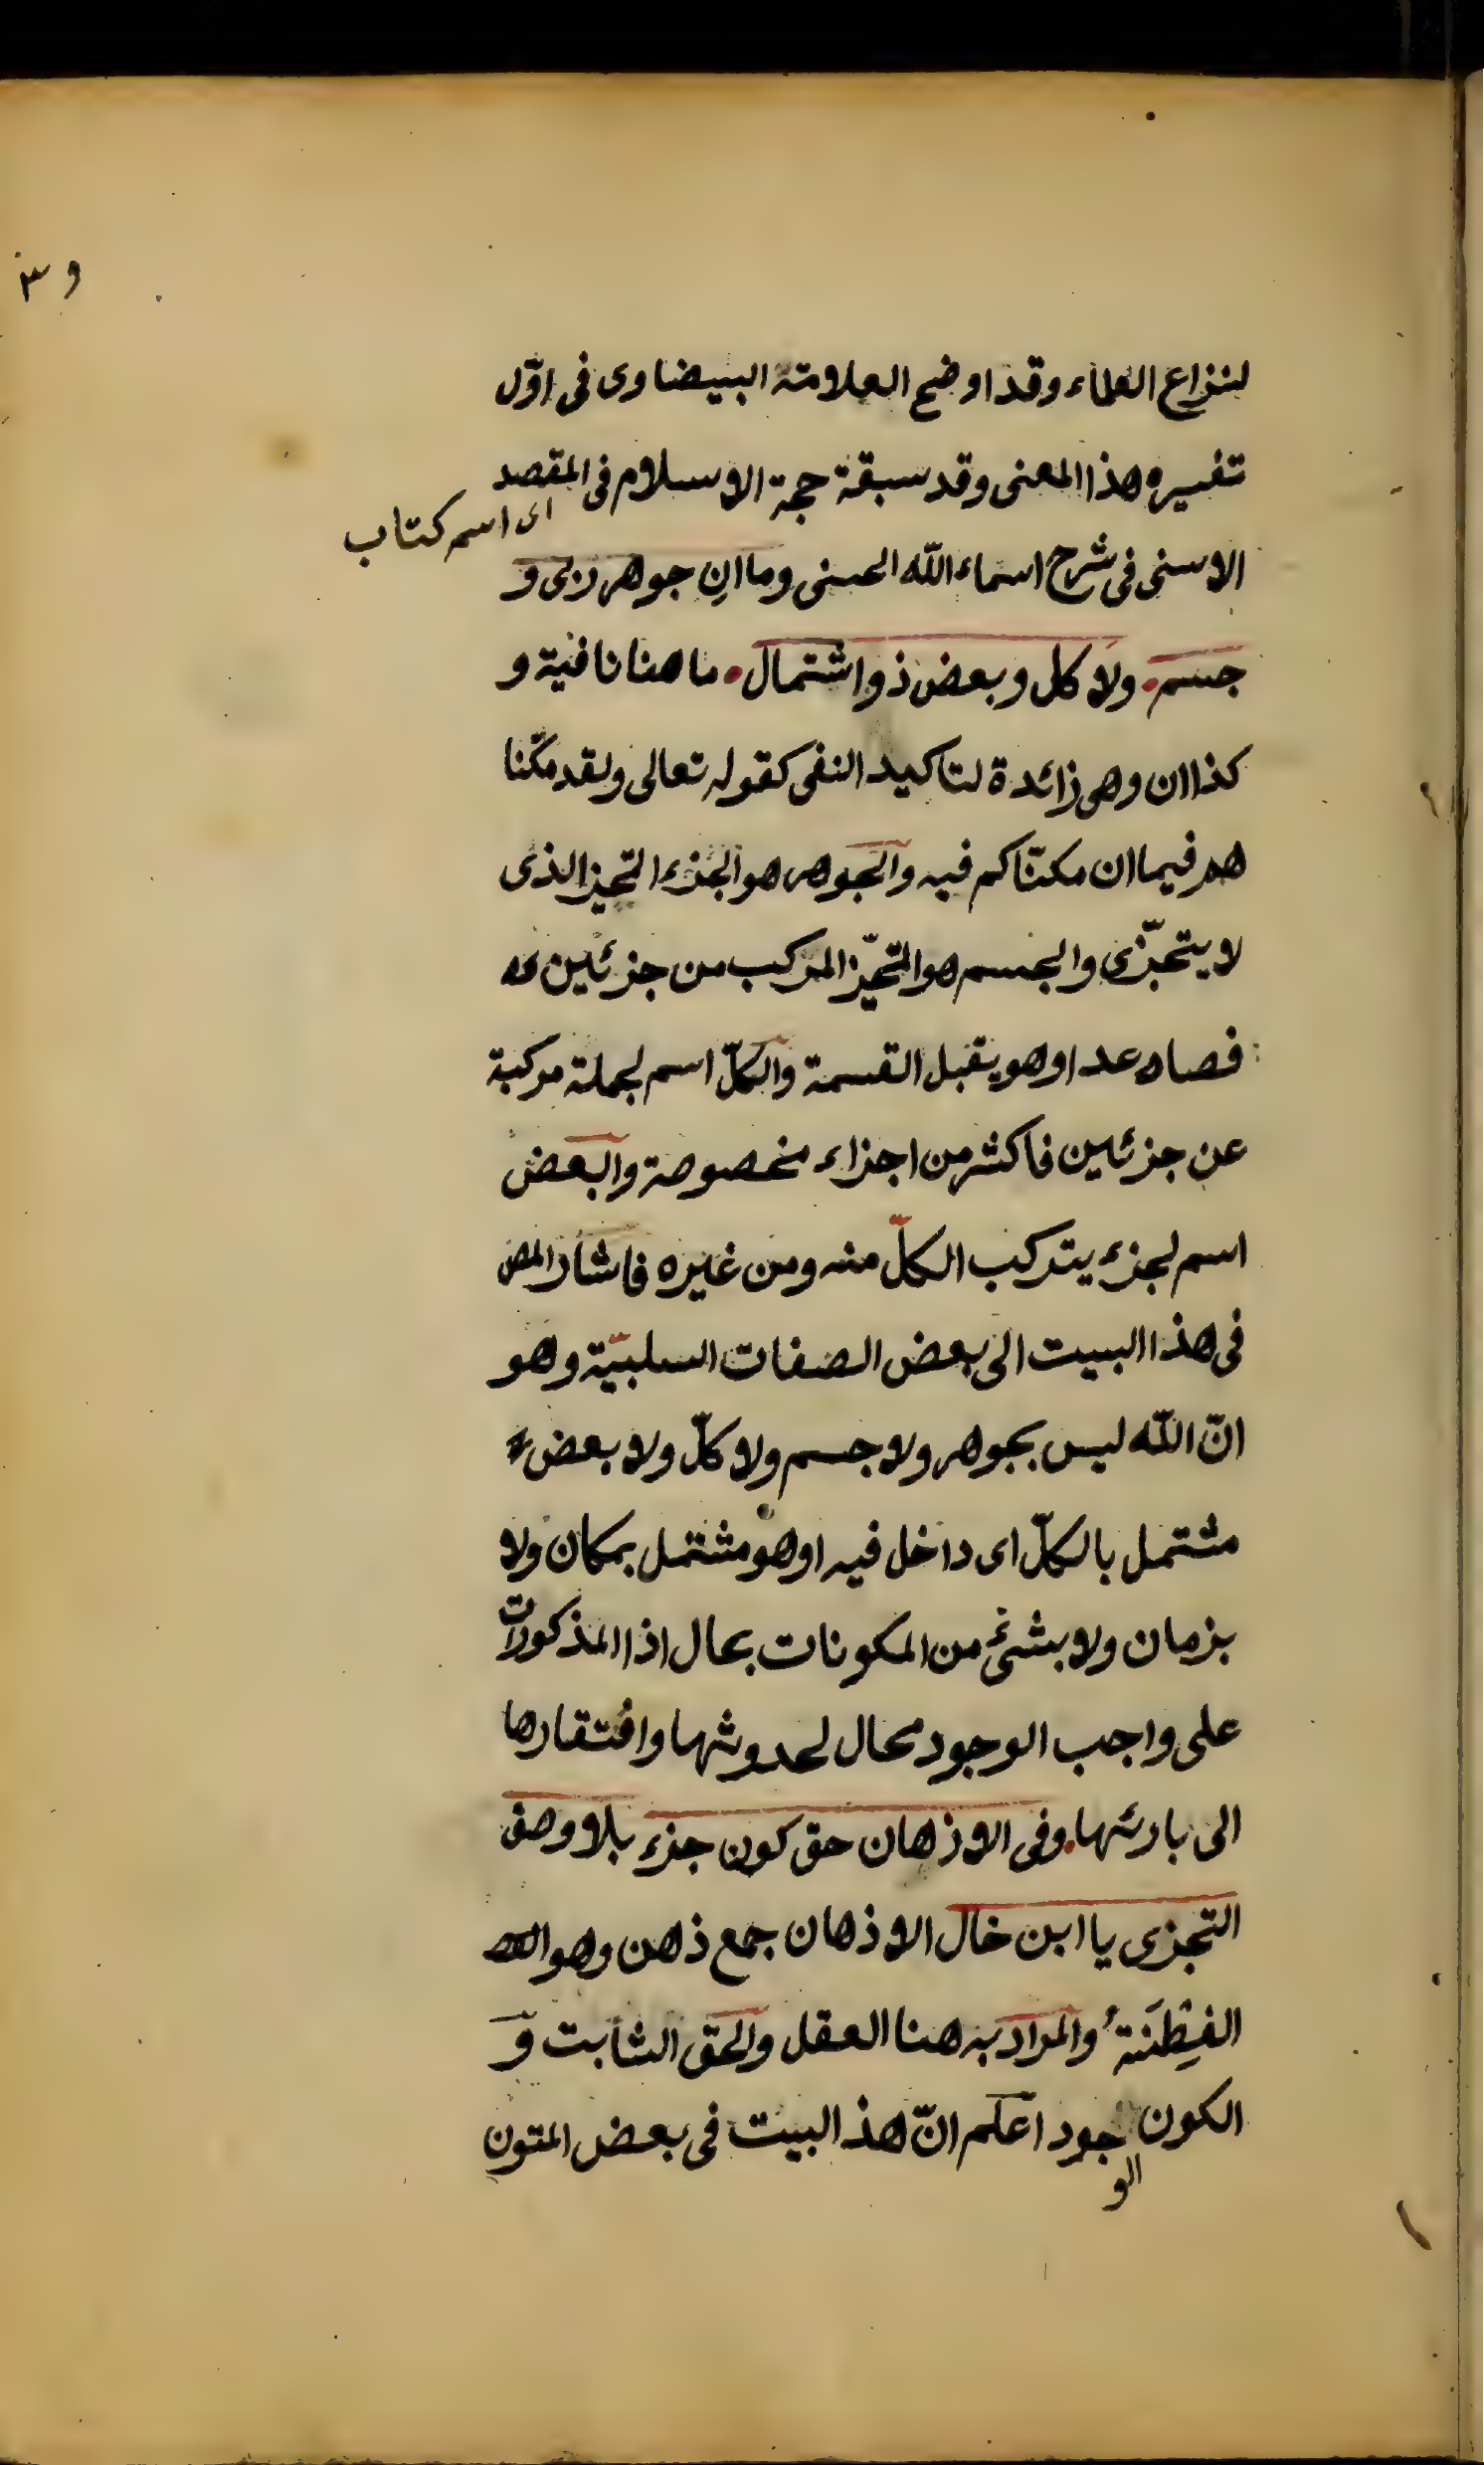 و ٣
لنزاع العلماء وقد اوضح العلامة البيضاوى فى اوّل
تفسيره هذا المعنى وقد سبقة حجة الاسلام فى المقصد
اى اسم كتاب
الاسنى فى شرح اسماء اللّه الحسنى وما ان جوهر ربى و
جسم. ولا كل وبعض ذو اشتمال. ما هنا نافية و
كذا ان وهى زائدة لتاكيد النفى كقوله تعالى ولقد مكّنا
هم فيما ان مكنّاكم فيه والجوهر هو الجزء المتحيز الذى
لا يتجزّى والجسم هو المتحيّز المركب من جزئين
فصاعدا وهو يقبل القسمة والكلّ اسم لجملة مركبة
عن جزئين فاكثر من اجزاء مخصوصة والبعض
اسم لجزء يتركب الكلّ منه ومن غيره فاشار المص
فى هذا البيت الى بعض الصفات السلبيّة وهو
انّ اللّه ليس بجوهر ولا جسم ولا كلّ ولا بعض
مشتمل بالكلّ اى داخل فيه او هو مشتمل بمكان ولا
بزمان ولا بشئ من المكونات بحال اذا المذكورات
على واجب الوجود محال لحدوثها وافتقارها
الى بارئها. وفى الاذهان حق كون جزء بلا وصف
التجزى يا ابن خال الاذهان جمع ذهن وهو
الفِطْنَةُ والمراد به هنا العقل والحق الثابت و
الكون الوجود اعلم انّ هذا البيت فى بعض المتون